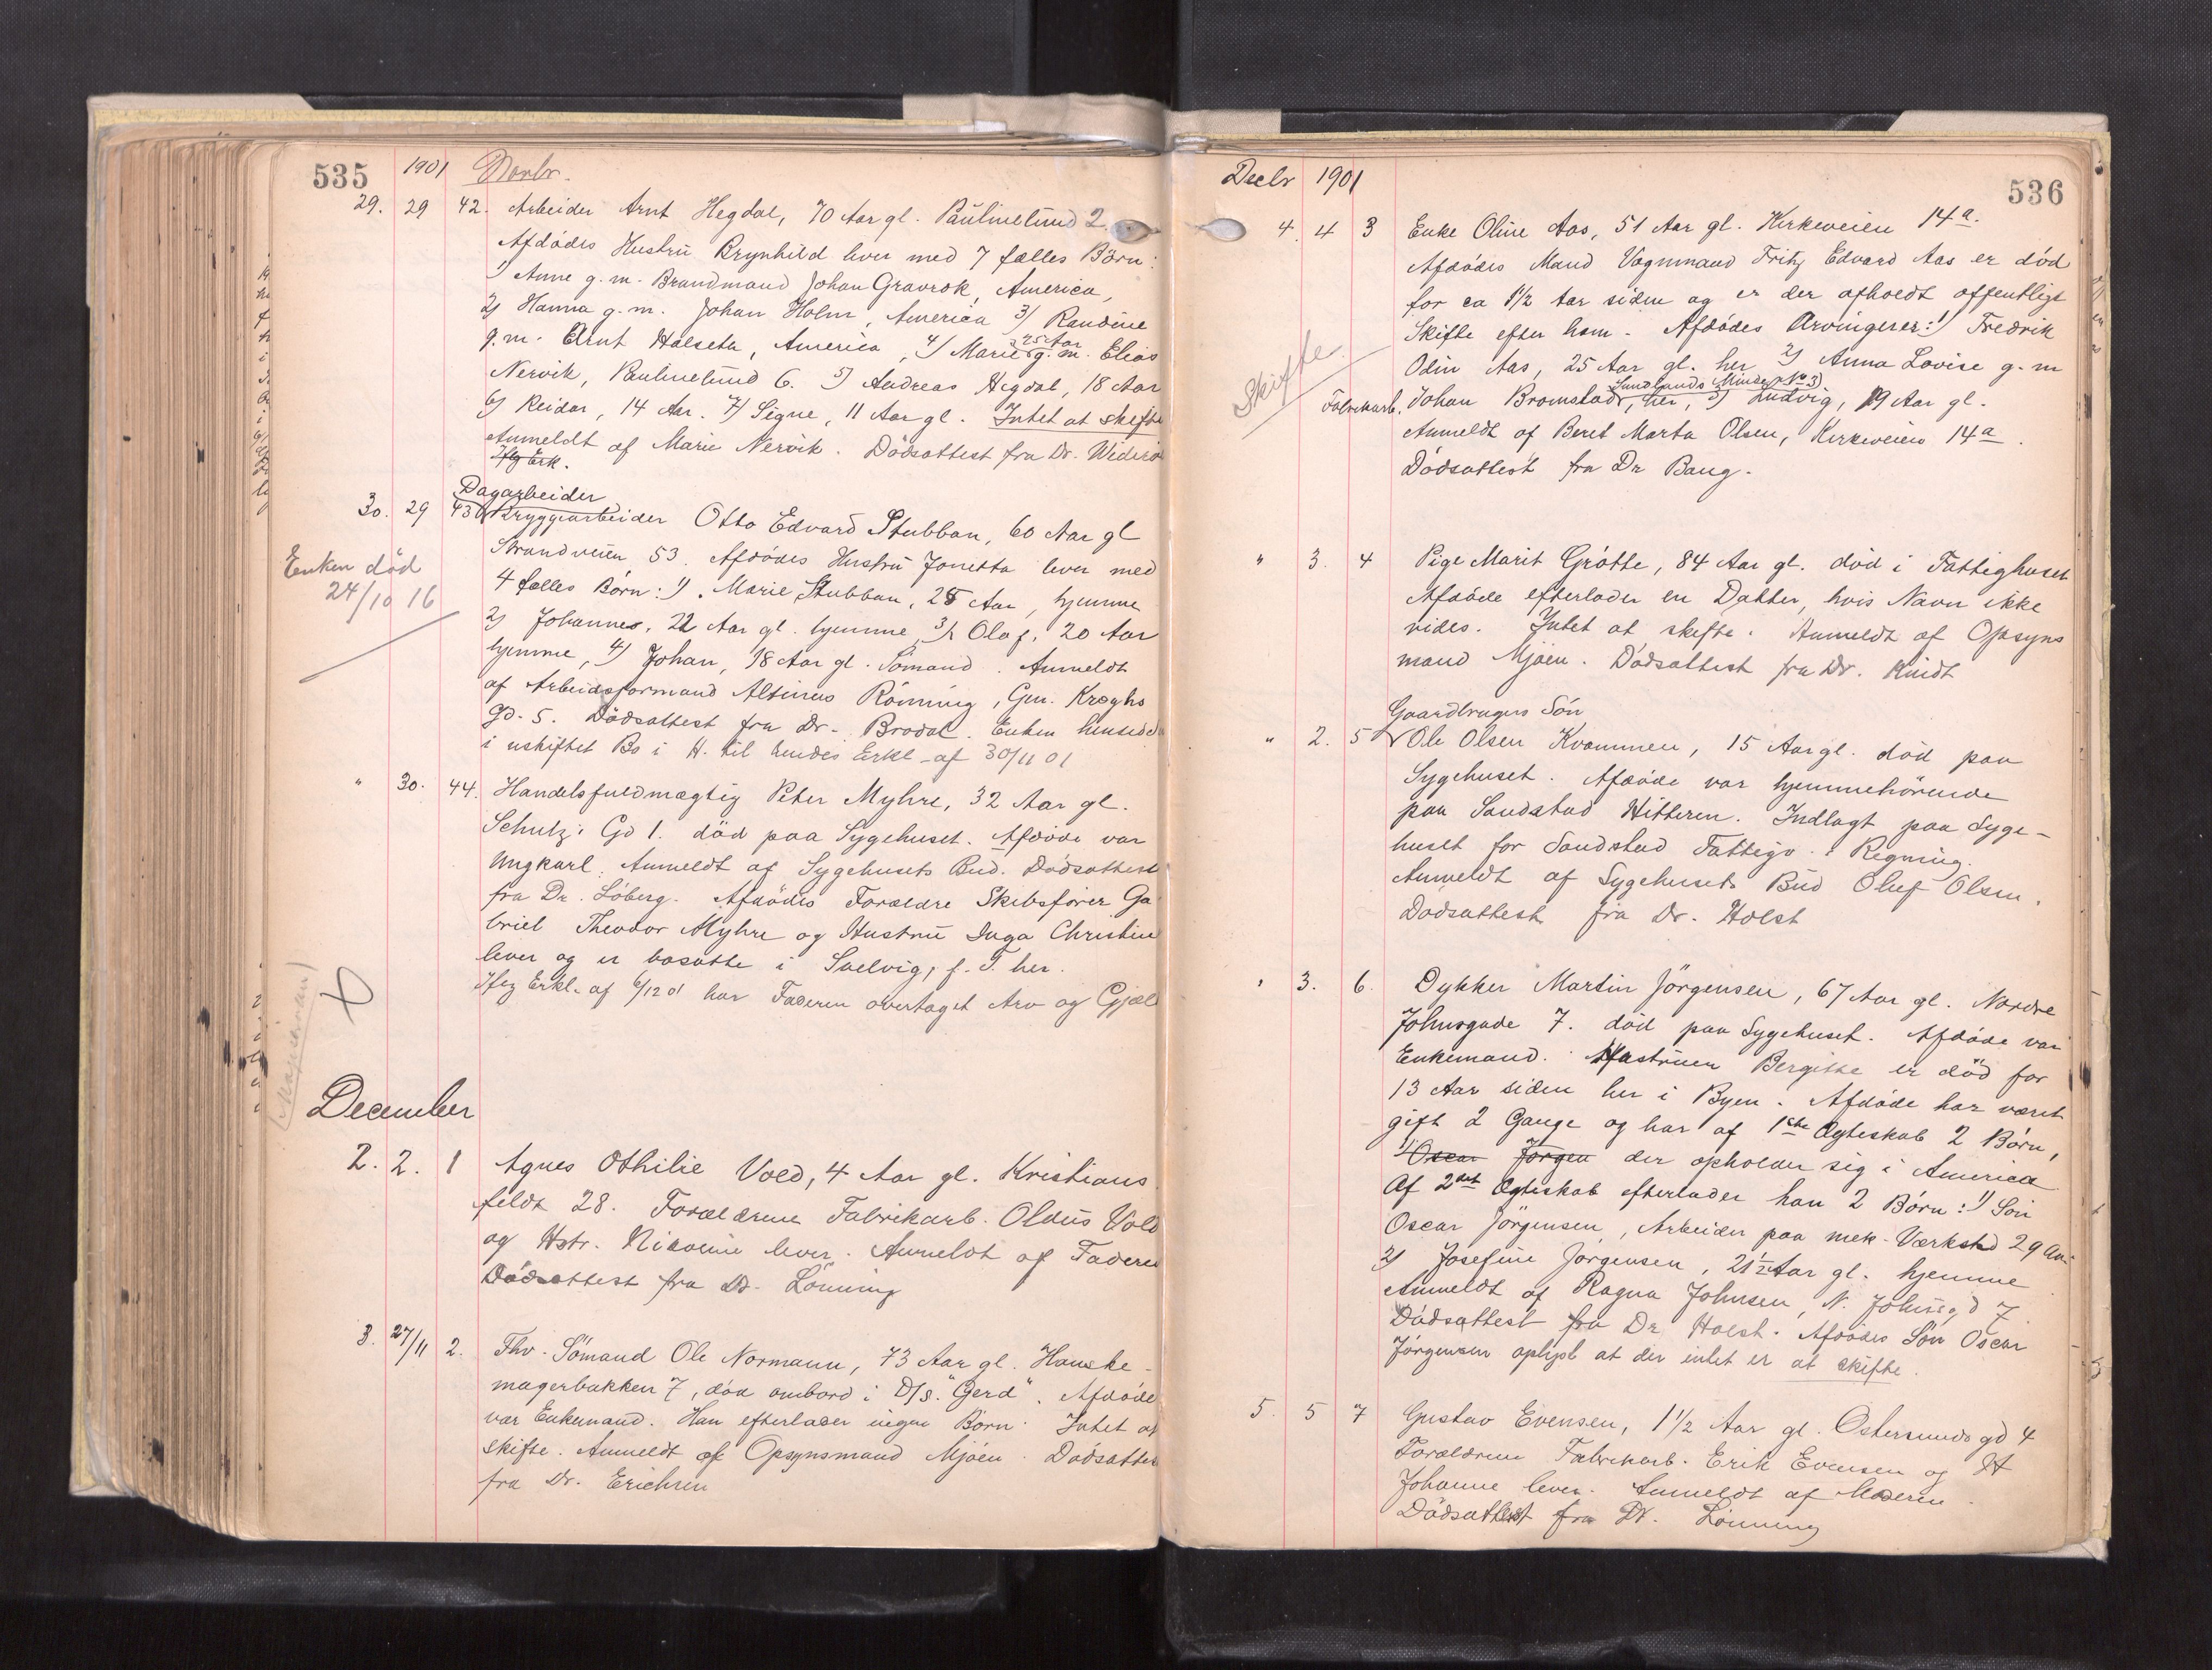 535 1901 Novbr.
29. 29 42. Arbeider Arnt Hegdal, 70 Aar gl. Paulinelund 2.
Afdødes Hustru Brynhild lever med 7 fælles Børn:
1) Anne g. m. Brandmand Johan Gravrok, America,
2) Hanna g. m. Johan Holm, America 3) Randine
g. m. Arnt Halseth, America, 4) Marie 25 Aar g. m. Elias
Nervik, Paulinelund 6. 5) Andreas Hegdal, 18 Aar
6) Reidar, 14 Aar. 7) Signe, 11 Aar gl. Intet at skifte
Anmeldt af Marie Nervik. Dødsattest fra Dr. Widerø
Ifg Erk.
Dagarbeider
30. 29 43 Bryggearbeider Otto Edvard Stubban, 60 Aar gl
Strandveien 53. Afdødes Hustru Jonetta lever med
Enken død
24/10 16
4 fælles Børn: 1) Marie Stubban, 25 Aar, hjemme
2) Johannes, 22 Aar gl. hjemme, 3) Olaf, 20 Aar
hjemme, 4) Johan, 18 Aar gl. Sømand. Anmeldt
af Arbeidsformand Altinius Rønning, Gen. Kroghs
Gd. 5. Dødsattest fra Dr. Brodal. Enken hensidd
i uskiftet Bo i H. til hendes Erkl. af 30/11 01
" 30. 44. Handelsfuldmægtig Peter Myhre, 32 Aar gl.
Schultz's Gd 1. død paa Sygehuset. Afdøde var
Ungkarl. Anmeldt af Sygehusets Bud. Dødsattest
fra Dr. Løberg. Afdødes Forældre Skibsfører Ga
briel Theodor Myhre og Hustru Inga Christine
lever og er bosatte i Svelvig, f. T. her.
Ifg Erkl. af 6/12 01 har Faderen overtaget Arv og Gjæl
December
2. 2. 1 Agnes Othilie Vold, 4 Aar gl. Kristians
feldt 28. Forældrene Fabrikarb. Oldus Vold
og Hstr. Nicoline lever. Anmeldt af Faderen
Dødsattest fra Dr. Lønning
3. 27/11 2. Fhv. Sømand Ole Normann, 73 Aar gl. Hanske-
magerbakken 7, død ombord i D/S. "Gerd". Afdøde
var Enkemand. Han efterlader ingen Børn. Intet at
skifte. Anmeldt af Opsynsmand Mjøen. Dødsattes
fra Dr. Erichsen
Decbr 1901 536
4. 4 3 Enke Oline Aas, 51 Aar gl. Kirkeveien 14a.
Afdødes Mand Vognmand Fritz Edvard Aas er død
for ca 1 1/2 Aar siden og er der afholdt offentligt
Skifte
Skifte efter ham. Afdødes Arvinger er: 1) Fredrik
Odin Aas, 25 Aar gl. her 2) Anna Lovise g. m
Sundlands Minde No 3)
Fabrikarb. Johan Bromstad, her, 3) Ludvig, 19 Aar gl.
Anmeldt af Beret Marta Olsen, Kirkeveien 14a.
Dødsattest fra Dr Bang.
" 3. 4 Pige Marit Grøtte, 84 Aar gl. død i Fattighuset
Afdøde efterlader en Datter, hvis Navn ikke
vides. Intet at skifte. Anmeldt af Opsyns
mand Mjøen. Dødsattest fra Dr. Kindt
Gaardbrugers Søn
" 2. 5 Ole Olsen Kvammen, 15 Aar gl. død paa
Sygehuset. Afdøde var hjemmehørende
paa Sandstad Hitteren. Indlagt paa Syge-
huset for Sandstad Fattigv.s Regning.
Anmeldt af Sygehusets Bud Oluf Olsen.
Dødsattest fra Dr. Holst
" 3. 6. Dykker Martin Jørgensen, 67 Aar gl. Nordre
Johnsgade 7. død paa Sygehuset. Afdøde var
Enkemand. Hustruen Bergitte er død for
13 Aar siden her i Byen. Afdøde har været
gift 2 Gange og har af 1ste Ægteskab 2 Børn,
1) Oscar Jørgen der opholder sig i America
Af 2det Ægteskab efterlader han 2 Børn: 1) Søn
Oscar Jørgensen, Arbeider paa mek. Værksted 29 Aar
2) Josefine Jørgensen, 21 1/2 Aar gl. hjemme
Anmeldt af Ragna Johnsen, N. Johnsgd 7
Dødsattest fra Dr Holst. Afdødes Søn Oscar
Jørgensen oplyst at der intet er at skifte.
5. 5 7 Gustav Evensen, 1 1/2 Aar gl. Østersunds gd 4
Forældrene Fabrikarb. Erik Evensen og H
Johanne lever. Anmeldt af Moderen.
Dødsattest fra Dr. Lønning